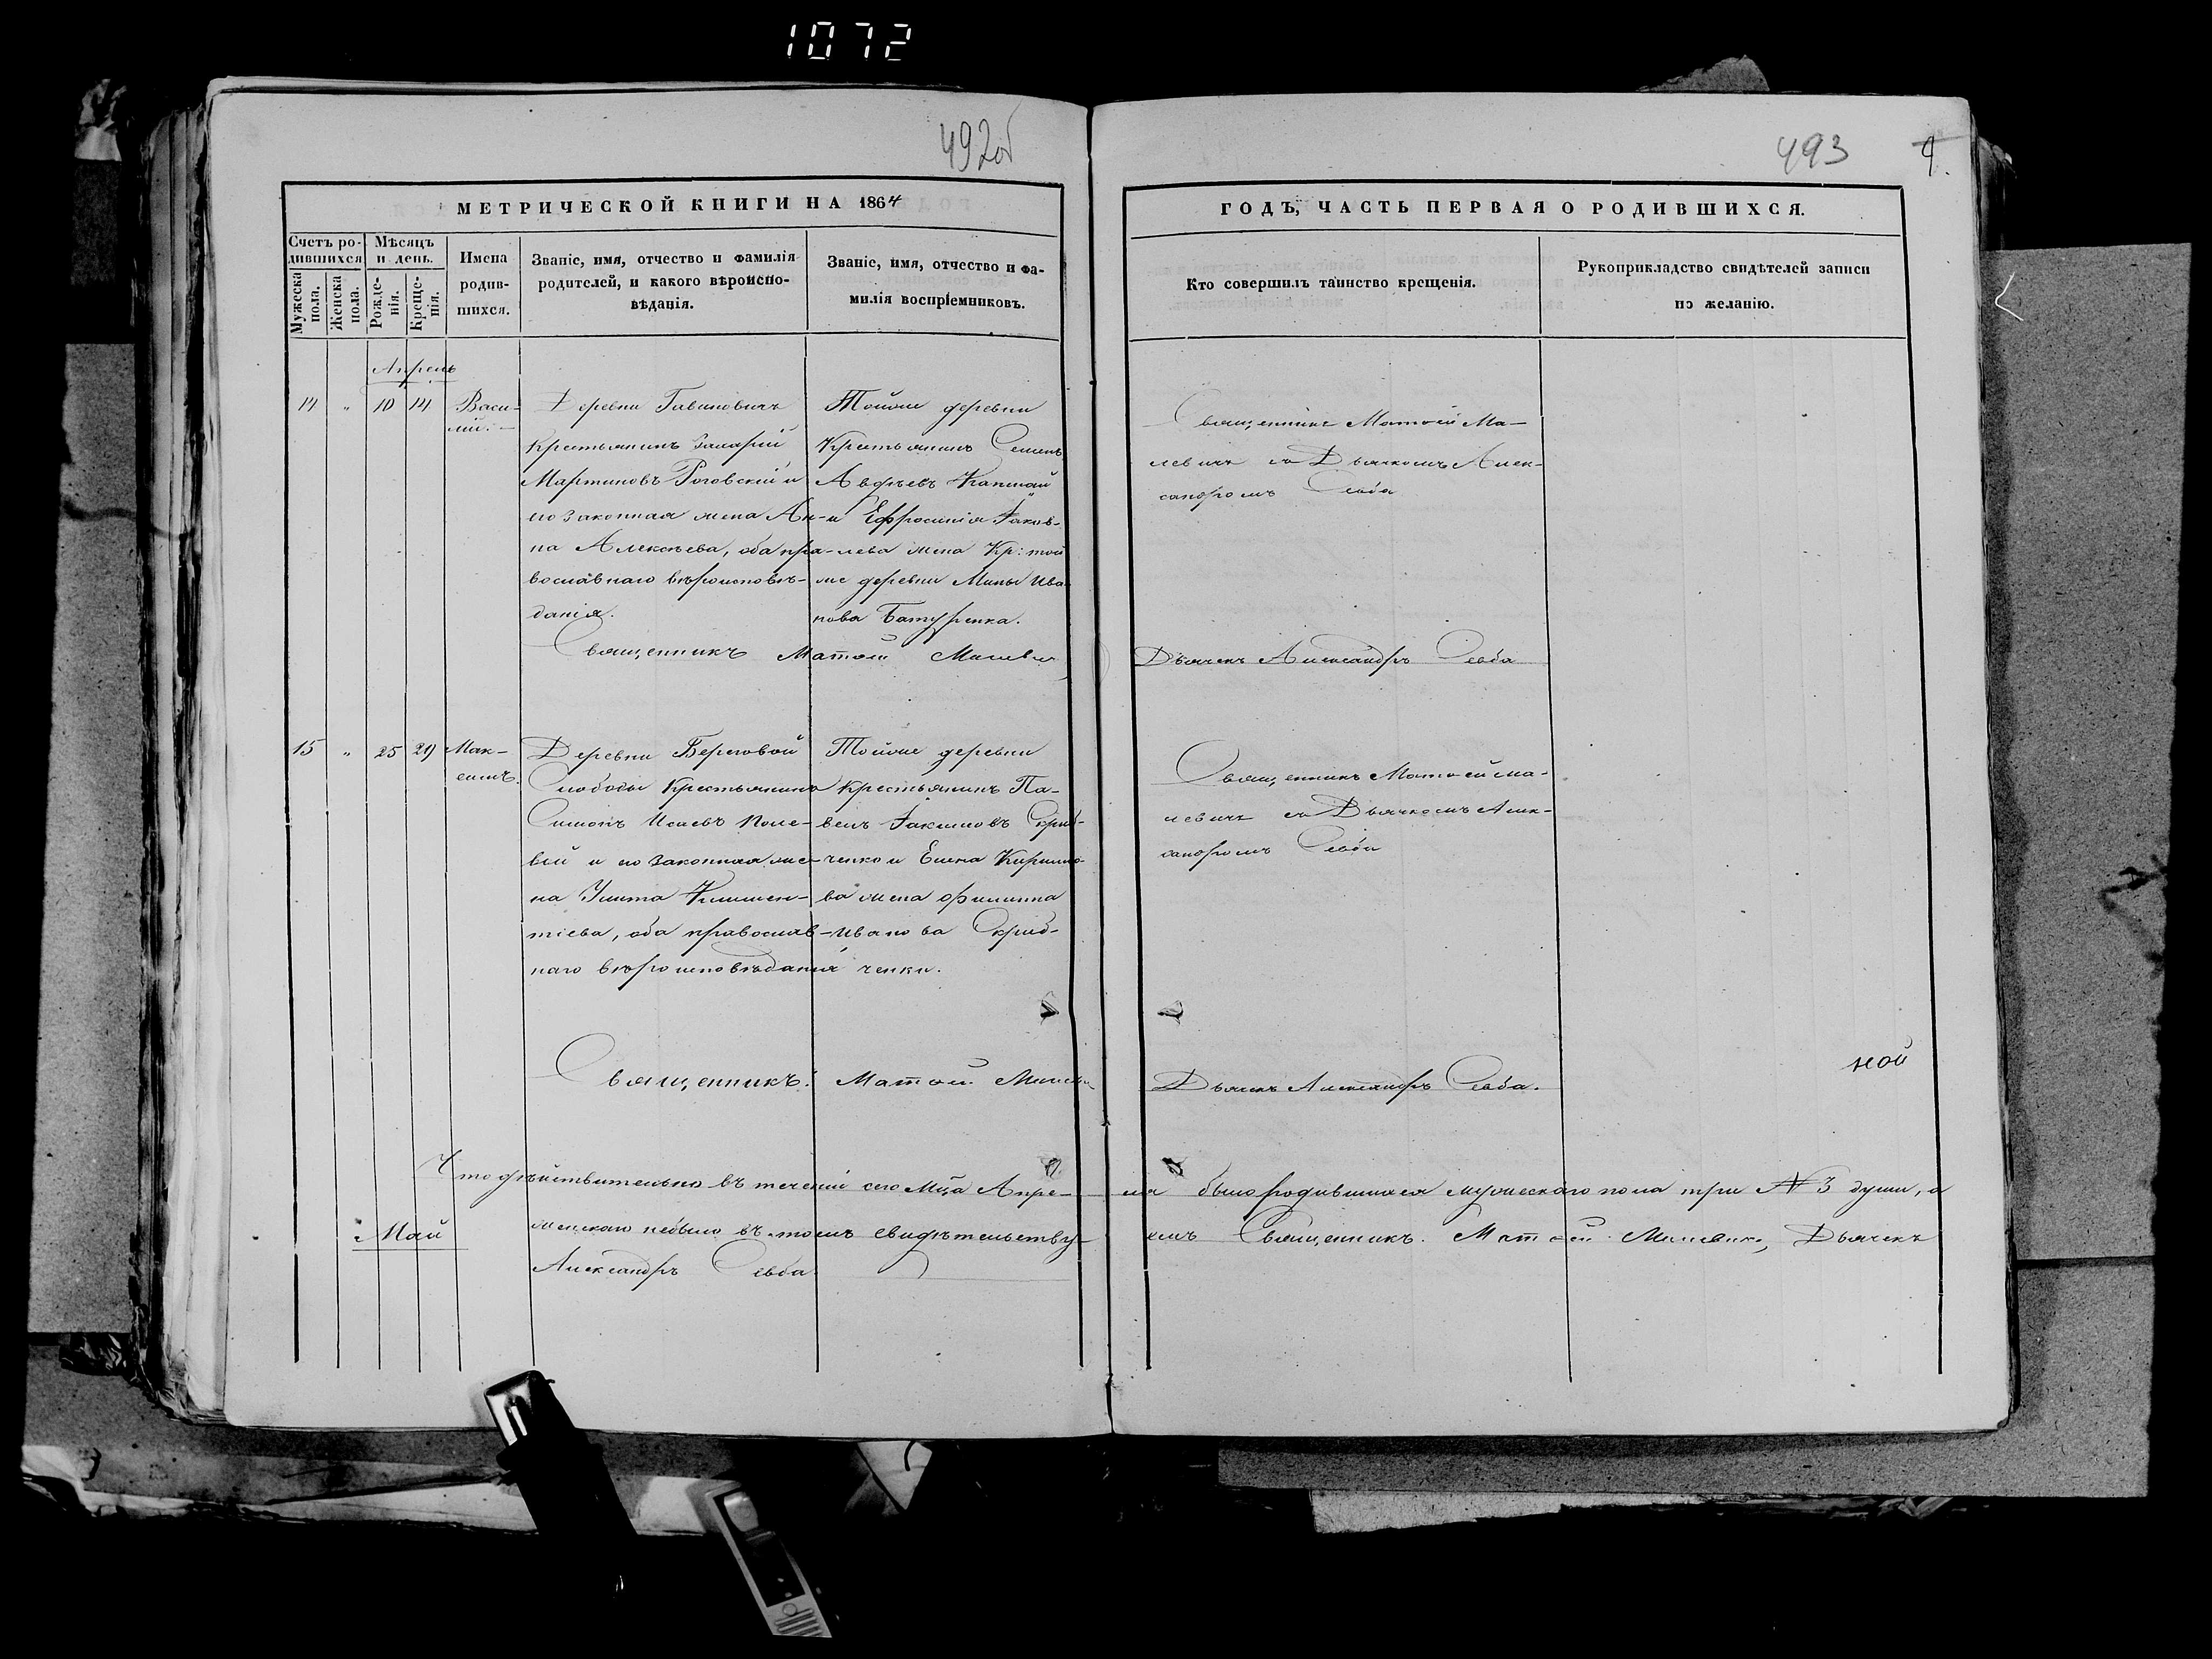 1072
492об
493
9.
МЕТРИЧЕСКОЙ КНИГИ НА 1864
ГОДЪ, ЧАСТЬ ПЕРВАЯ О РОДИВШИХСЯ.
Счетъ ро-
дившихся
Мужеска
пола.
Женска
пола.
Мѣсяцъ
и день.
Рожде-
нія.
Креще-
нія.
Имена
родив-
шихся.
Званіе, имя, отчество и фамилія
родителей, и какого вѣроиспо-
вѣданія.
Званіе, имя, отчество и фа-
милія воспріемниковъ.
Кто совершилъ таинство крещенія.
Рукоприкладство свидѣтелей записи
по желанію.
Апрель
14 " 10 14
Васи-
лій.
Деревни
Крестьянинъ Захарій
Мартиновъ Роговскій и
его законная жена Ан-
на Алексѣева, оба пра-
вославнаго вѣроисповѣ-
данія.
Тойже деревни
Крестьянинъ Семенъ
Авдѣевъ
и Ефросинія Іаков-
лева жена Кр: той
же деревни Мины Ива-
нова Батуренка.
Священникъ Матѳей Ма-
левичъ съ Дьячкомъ Алек-
сандромъ Севба
Священникъ Матѳей Малевич
Дьячекъ Александръ Севба
15 " 25 29
Мак-
симъ.
Деревни Береговой
Слободы Крестьянинъ
Симонъ Исаевъ Поле-
вій и его законная же-
на Улита Климен-
тіева, оба православ-
наго вѣроисповѣданія
Тойже деревни
Крестьянинъ Па-
велъ Іакимовъ Скрib-
ченко и Елена Кирилло-
ва жена Филиппа
Иванова
ченки.
Священникъ Матѳей Ма-
левичъ съ Дьячкомъ Алек-
сандромъ Севба
Священникъ Матѳей Малевич
Дьячекъ Александръ Севба.
ной
Что дѣйствительно въ теченіи сего Мца Апре-
ля было родившихся мужескаго пола три № 3 души, а
Май
женскаго небыло въ томъ свидѣтельству-
емъ Священникъ Матѳей Малевичъ, Дьячекъ
Александръ Севба